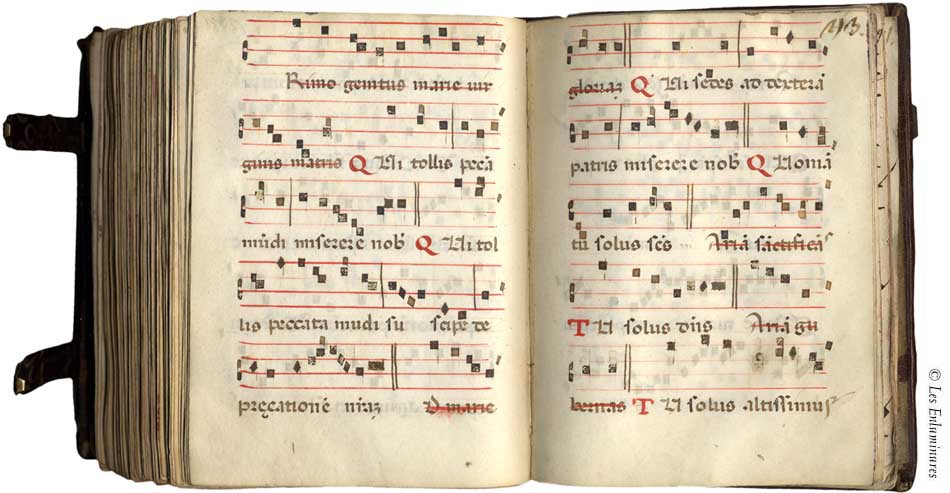 Rimo genitus marie uir
ginis matris Qui tollis pecā
mūdi miserere nob Qui tol
lis peccata mūdi su scipe de
precationē nrāꝫ D marie
43.
gloriaꝫ Qui sedes ad dexterā
patris miserere nob Quonią̄
tu solus scs Ariā sāctificās
Tu solus dn̄s Ariā gu
bernas Tu solus altissimus
© Les Enluminures